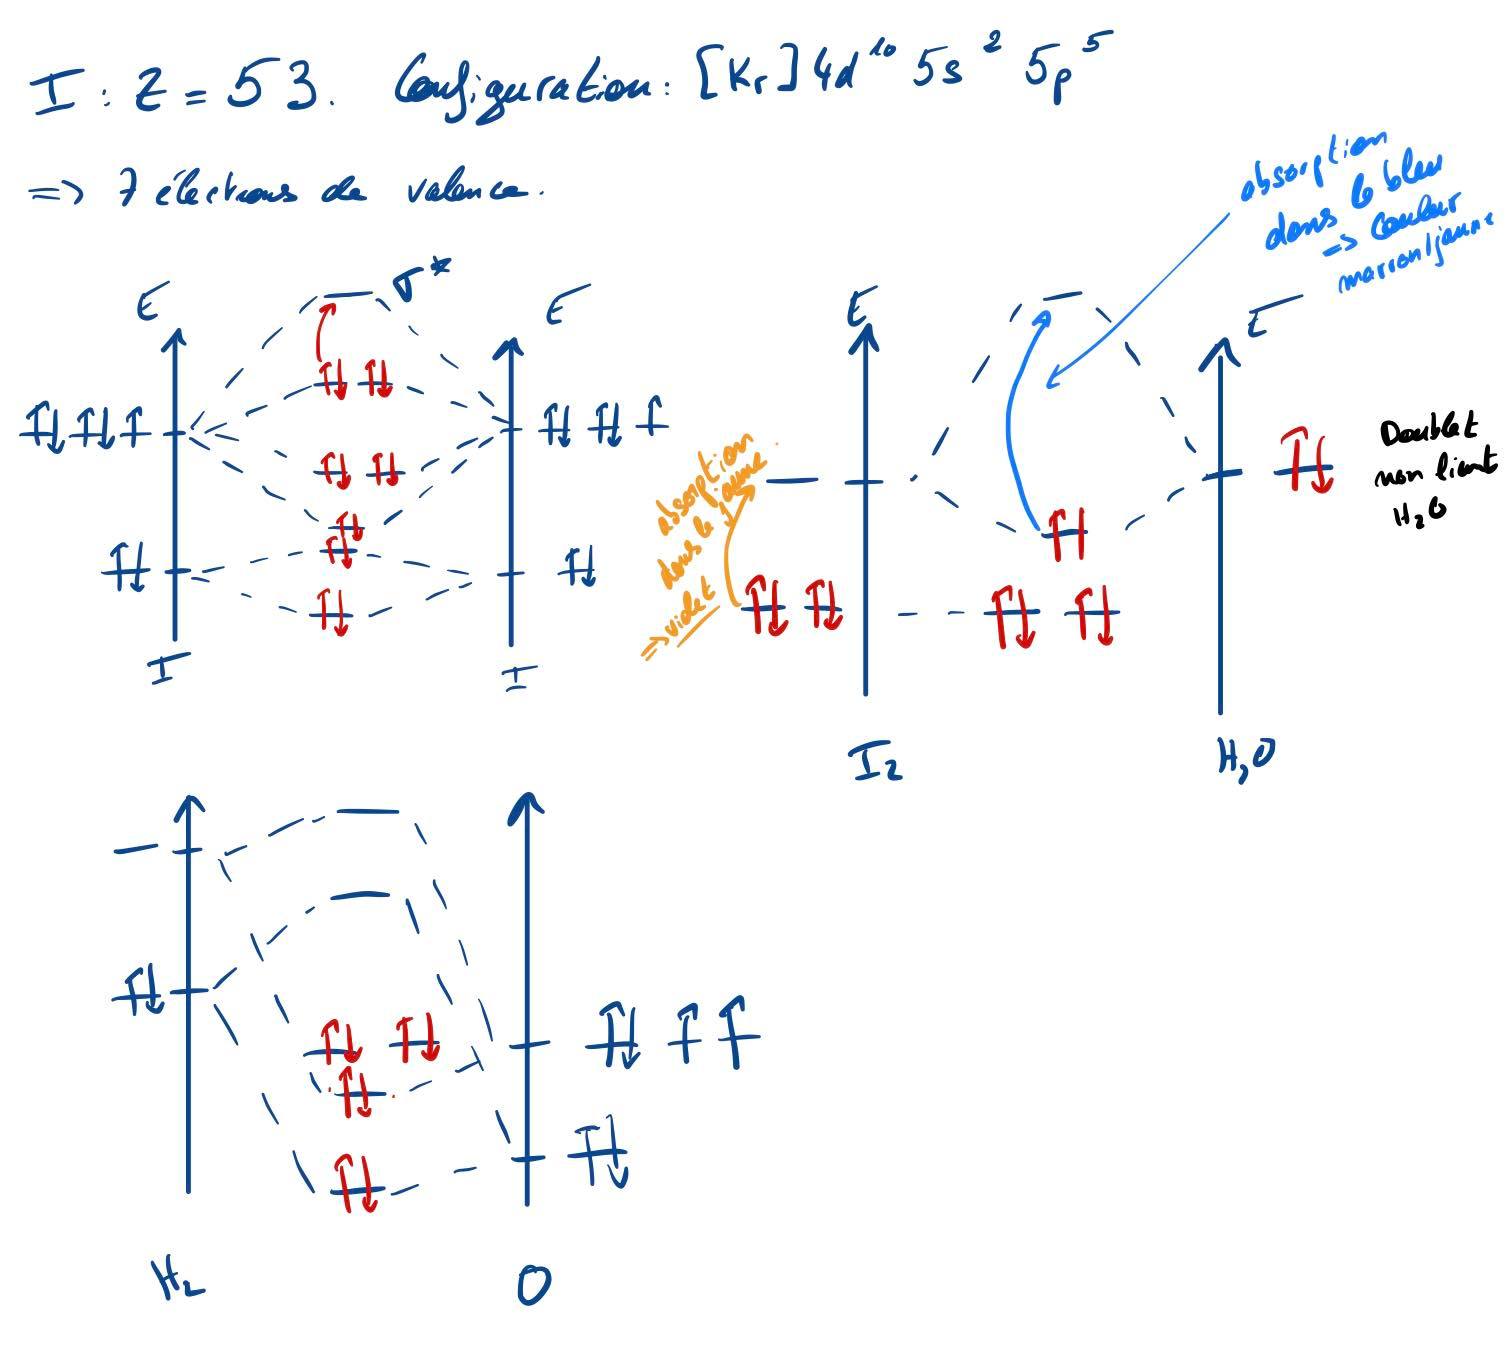 I : Z = 53. Configuration : [Kr] 4d¹⁰ 5s² 5p⁵
=> 7 électrons de valence.
absorption
dans le bleu
=> couleur
marron/jaune
E
σ*
E
I
I
absorption
dans le jaune
=> violet
E
E
Doublet
non liant
H₂O
I₂
H₂O
H₂
O